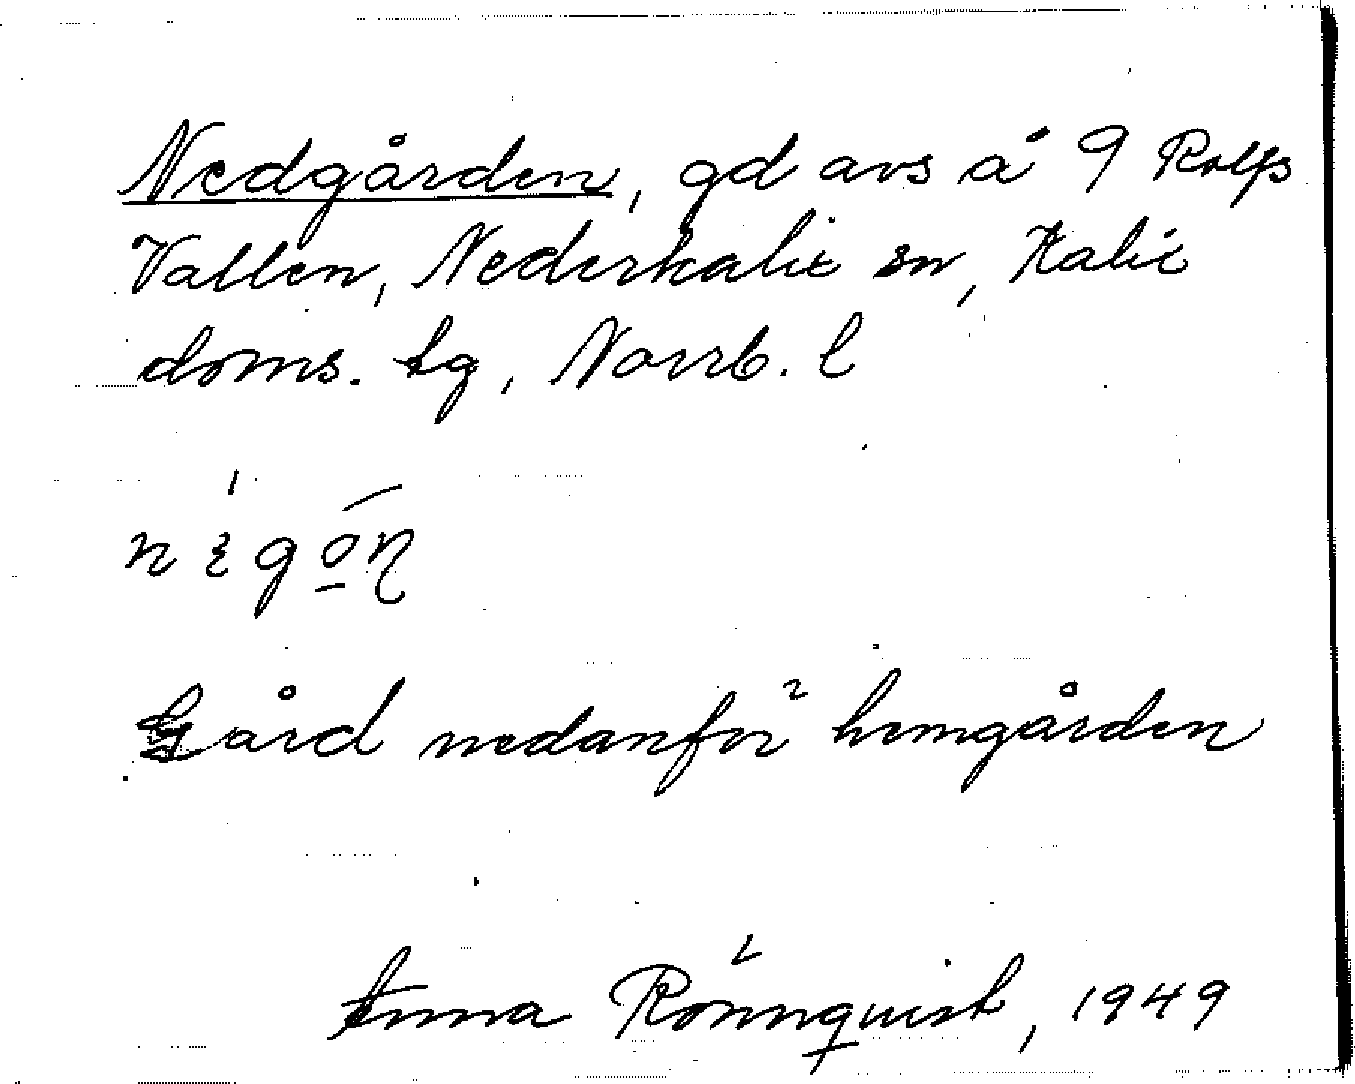 Nedgården, gd avs å 9 Rolfs
Vallen, Nederkalix sn, Kalix
doms. tg, Norrb. l
Gård nedanför hemgården
Anna Rönnquist, 1949